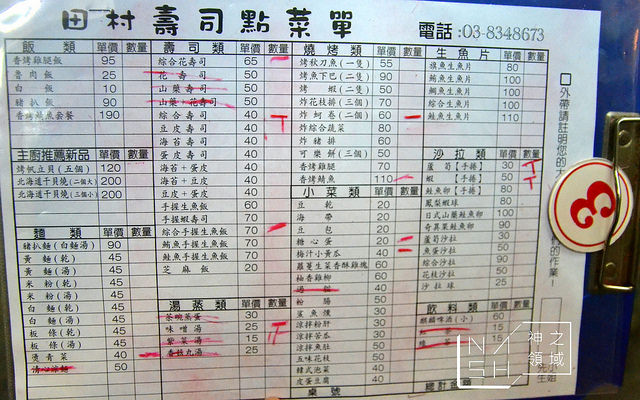 田村壽司點菜單
電話:03-8348673
飯類 單價 數量
香烤雞腿飯 95
魯肉飯 25
白飯 10
豬排飯 90
香烤鯖魚套餐 190
主廚推薦新品 單價 數量
烤帆立貝(五個) 120
北海道干貝燒(二個大) 200
北海道干貝燒(三個小) 200
麵類 單價 數量
豬排麵(白麵湯) 90
黃麵(乾) 45
黃麵(湯) 45
米粉(乾) 45
米粉(湯) 45
白麵(乾) 45
白麵(湯) 45
板條(乾) 45
板條(湯) 45
燙青菜 40
50
壽司類 單價 數量
綜合花壽司 65
花壽司 50
山藥壽司 50
山藥+花壽司 50
綜合壽司 40
豆皮壽司 40
海苔壽司 40
蛋皮壽司 40
海苔+蛋皮 40
海苔+豆皮 40
豆皮+蛋皮 40
手握生魚飯 60
手握蝦壽司 70
綜合手握生魚飯 70
鮪魚手握生魚飯 70
鮭魚手握生魚飯 70
芝麻飯 20
湯蒸類 單價 數量
茶碗蒸蛋 30
味噌湯 25
紫菜湯 25
香菇丸湯 25
燒烤類 單價 數量
烤秋刀魚(一隻) 55
烤魚下巴(二隻) 90
烤蝦(二隻) 50
炸花枝排(三個) 70
炸蚵卷(二個) 60
炸綜合蔬菜 80
炸豬排 60
可樂餅(三個) 50
香烤雞腿 70
香烤鯖魚 110
小菜類 單價 數量
豆乾 20
海帶 20
豆包 20
糖心蛋 20
梅汁小黃瓜 40
蘿蔓生菜香酥雞塊 60
柚香雞柳 60
40
粉腸 50
鯊魚煙 30
涼拌粉肝 30
涼拌苦瓜 30
涼拌魚肚 50
五味花枝 50
韓式泡菜 40
皮蛋豆腐 40
桌號
生魚片 單價 數量
旗魚生魚片 80
鮪魚生魚片 100
鯛魚生魚片 100
綜合生魚片 100
鮭魚生魚片 110
沙拉類 單價 數量
蘆筍【手捲】 30
蝦【手捲】 50
鮭魚卵【手捲】 80
鳳梨蝦球 80
日式山藥鮭魚卵 100
奇異果鮭魚卵 90
蘆筍沙拉 30
魚蛋沙拉 50
綜合沙拉 90
花枝沙拉 50
沙拉球 25
飲料類 單價 數量
麒麟啤酒(小) 60
紅茶 15
綠茶 15
總計金額
□外帶請註明您的大
們的作業!
小姐
生
3
神之領域